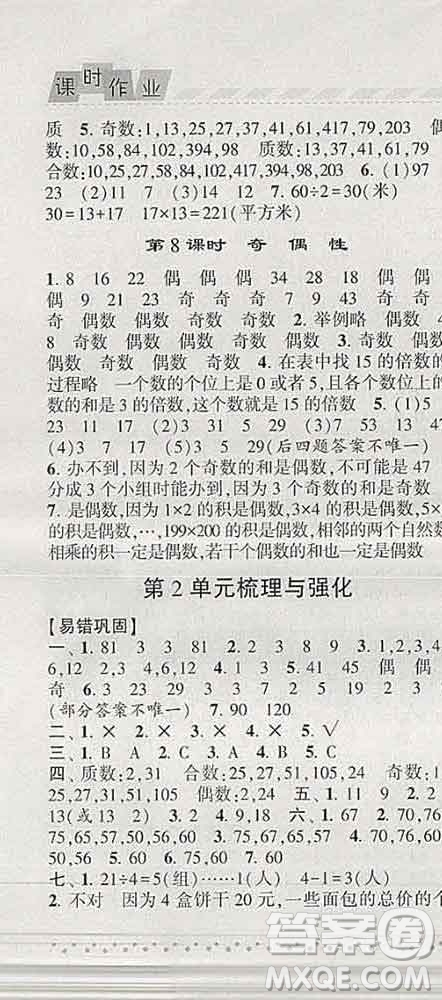 课时作业
质 5. 奇数:1,13,25,27,37,41,61,417,79,203 偶
数:10,58,84,102,394,98 质数:13,37,41,61,79
合数:10,25,27,58,84,102,394,417,98,203 6. (1)97
23 (2)11 7 (3)2 11 7. 60÷2=30(米)
30=13+17 17×13=221(平方米)
第8课时 奇 偶 性
1. 8 16 22 偶 偶 偶 34 28 18 偶 偶
偶 9 21 23 奇 奇 奇 7 9 43 奇 奇
奇 偶数 偶数 奇数 奇数 2. 举例略 偶数
8 奇数 偶数 偶数 奇数 偶数 3. 奇数 偶数
偶数 奇数 奇数 偶数 4. 在表中找15的倍数的
过程略 一个数的个位上是0或者5,且各个数位上的
数的和是3的倍数,这个数就是15的倍数 5. (1)5
23 11 17 (2)3 31 5 29 (3)2 13
(4)3 7 5 29(后四题答案不唯一)
6. 办不到,因为2个奇数的和是偶数,不可能是47
分成3个小组时能办到,因为3个奇数的和是奇数
7. 是偶数,因为1×2的积是偶数,3×4的积是偶数,5×6
的积是偶数,…,199×200的积是偶数,相邻的两个自然数
相乘的积一定是偶数,若干个偶数的和也一定是偶数
第2单元梳理与强化
【易错巩固】
一、1. 81 3 3 81 2. 2 9 3. 1,2,3,4
6,12 2,3 4. 5 15 5. 45 偶 偶
奇 6. 3 23 29 3 3 7 19 2 3
(部分答案不唯一) 7. 90 120
二、1. × 2. × 3. × 4. × 5. √
三、1. B 2. A 3. C 4. A 5. C
四、质数:2,31 合数:25,27,51,105,24 奇数:
25,27,31,51,105 偶数:2,24 五、1. 11 9 2.
13(或13 2) 3. 2 2 2 六、1. 67 2.
75,65,57,50,56 3. 75,60,65,50 4. 70,76,60
50,56 5. 75,60,57
七、1. 21÷4=5(组)……1(人) 4-1=3(人)
2. 不对 因为4盒饼干20元,一些面包的总价的个
答案圈
MXQE.COM